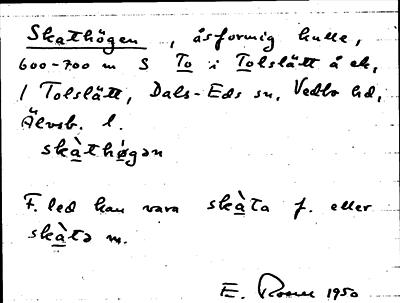 Skathögen, åsformig kulle,
600-700 m S To i Tolslätt å ek.
/ Tolslätt, Dals-Eds sn. Vedbo hd,
Älvsb. l.
skàthø̀gən
F. led kan vara skàta f. eller
skàtə m.
E. 1950